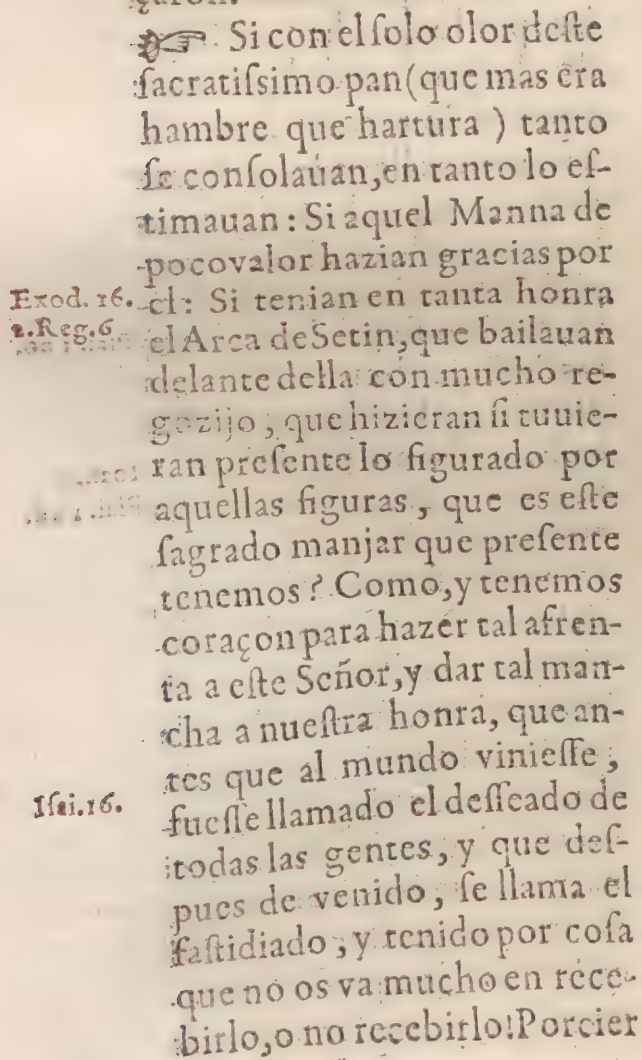 ☞ Si con el ſolo olor deſte
ſacratiſsimo pan (que mas era
hambre que hartura) tanto
ſe conſolauan, en tanto lo eſ-
timauan: Si aquel Manna de
poco valor hazian gracias por
Exod. 16. el: Si tenian en tanta honra
2.Reg.6 el Arca de Setin, que bailauan
delante della con mucho re-
gozijo, que hizieran ſi tuuie-
ran preſente lo figurado por
aquellas figuras, que es eſte
ſagrado manjar que preſente
tenemos? Como, y tenemos
coraçon para hazer tal afren-
ta a eſte Señor, y dar tal man-
cha a nueſtra honra, que an-
tes que al mundo vinieſſe,
Iſai.16. fueſſe llamado el deſſeado de
todas las gentes, y que deſ-
pues de venido, ſe llama el
faſtidiado, y tenido por coſa
que no os va mucho en rece-
birlo, o no recebirlo! Por cier